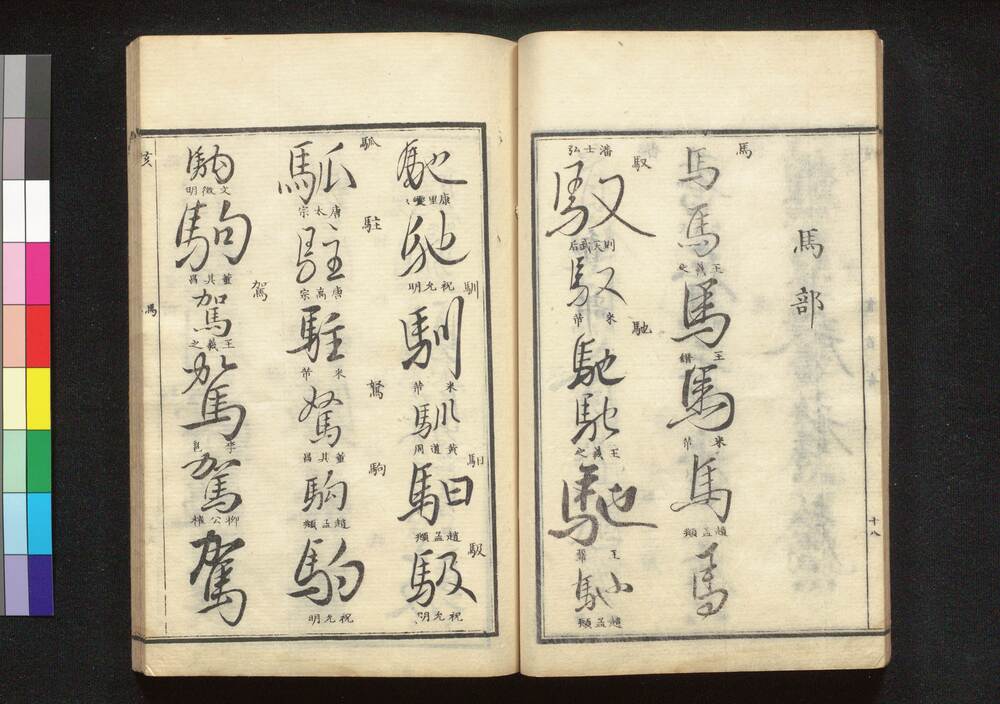 馬部
十八
馬
馬
馬
王羲之
馬
王
馬
米芾
馬
趙孟頫
馬
潘士弘
馭
馭
則天武后
馭
米芾
馳
馳
馳
王羲之
馳
王
馳
趙孟頫
馳
康里巎巎
馳
祝允明
馴
馴
米芾
馴
黃道周
馹
馹
趙孟頫
馺
馺
祝允明
唐太宗
駐
駐
唐高宗
駐
米芾
駑
駑
董其昌
駒
駒
趙孟頫
駒
祝允明
駒
文徵明
駒
董其昌
駕
駕
王羲之
駕
李邕
駕
柳公權
駕
亥
馬